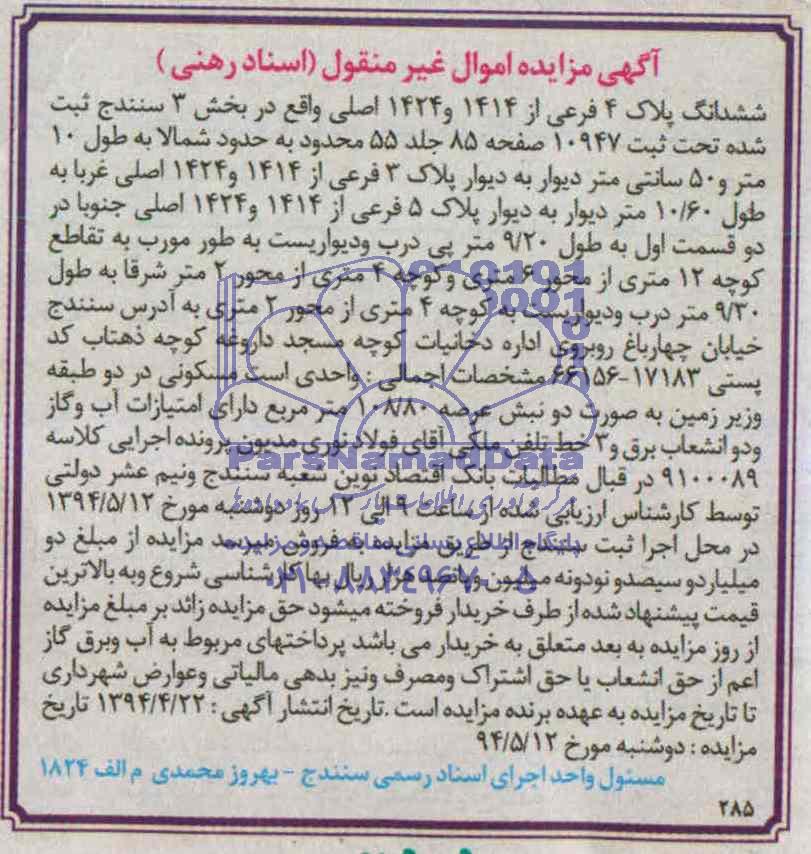 آگهی مزایده اموال غیر منقول (اسناد رهنی)
ششدانگ پلاک ۴ فرعی از ۱۴۱۴ و۱۴۲۴ اصلی واقع در بخش ۳ سنندج ثبت
شده تحت ثبت ۱۰۹۴۷ صفحه ۸۵ جلد ۵۵ محدود به حدود شمالا به طول ۱۰
متر و۵۰ سانتی متر دیوار به دیوار پلاک ۳ فرعی از ۱۴۱۴ و۱۴۲۴ اصلی غربا به
طول ۱۰/۶۰ متر دیوار به دیوار پلاک ۵ فرعی از ۱۴۱۴ و۱۴۲۴ اصلی جنوبا در
دو قسمت اول به طول ۹/۲۰ متر پی درب ودیواریست به طور مورب به تقاطع
کوچه ۱۲ متری از محور ۶ متری وکوچه ۴ متری از محور ۲ متر شرقا به طول
۹/۳۰ متر درب ودیواریست به کوچه ۴ متری از محور ۲ متری به آدرس سنندج
خیابان چهارباغ روبروی اداره دخانیات کوچه مسجد داروغه کوچه ذهتاب کد
پستی ۱۷۱۸۳-۶۶۱۵۶ مشخصات اجمالی : واحدی است مسکونی در دو طبقه
وزیر زمین به صورت دو نبش عرصه ۱۰۸/۸۰ متر مربع دارای امتیازات آب وگاز
ودو انشعاب برق و۳ خط تلفن ملکی آقای فولاد نوری مدیون پرونده اجرایی کلاسه
۹۱۰۰۰۸۹ در قبال مطالبات بانک اقتصاد نوین شعبه سنندج ونیم عشر دولتی
توسط کارشناس ارزیابی شده از ساعت ۹ الی ۱۲ روز دوشنبه مورخ ۱۳۹۴/۵/۱۲
در محل اجرا ثبت سنندج از طریق مزایده به فروش میرسد مزایده از مبلغ دو
میلیاردو سیصدو نودونه میلیون وپانصد هزار ریال بها کارشناسی شروع وبه بالاترین
قیمت پیشنهاد شده از طرف خریدار فروخته میشود حق مزایده زائد بر مبلغ مزایده
از روز مزایده به بعد متعلق به خریدار می باشد پرداختهای مربوط به آب وبرق گاز
اعم از حق انشعاب یا حق اشتراک ومصرف ونیز بدهی مالیاتی وعوارض شهرداری
تا تاریخ مزایده به عهده برنده مزایده است .تاریخ انتشار آگهی : ۱۳۹۴/۴/۲۲ تاریخ
مزایده : دوشنبه مورخ ۹۴/۵/۱۲
مسئول واحد اجرای اسناد رسمی سنندج - بهروز محمدی م الف ۱۸۲۴
۲۸۵
ParsNamadData
۰۲۱-۸۸۳۴۹۶۷۰-۵